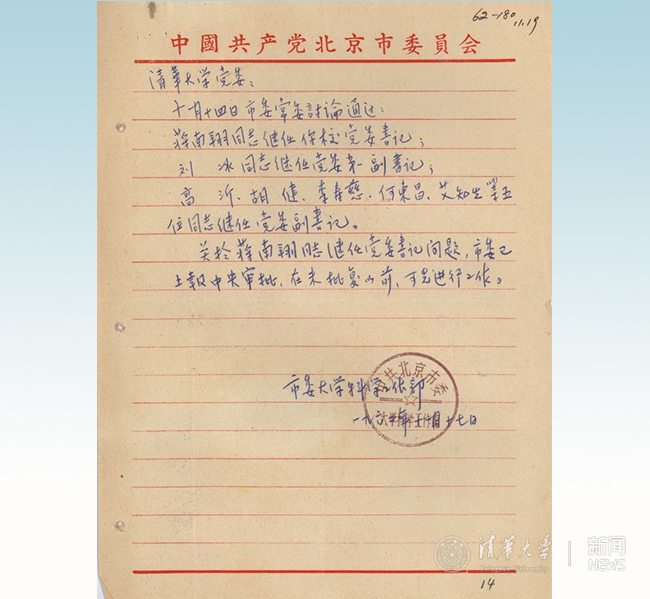 62-180
11.19
中國共产党北京市委員会
清華大学党委：
十月十四日市委常委討論通过：
蒋南翔同志继任你校党委書记；
刘 冰同志继任党委第一副書记；
高 沂、胡 健、李寿慈、何東昌、艾知生等五
位同志继任党委副書记。
关於蒋南翔同志继任党委書记问题，市委已
上報中央审批，在未批复以前，可先进行工作。
市委大学科学工作部
中共北京市委
大学科学工作部
一九六 年 月十七日
清華大学
Tsinghua University
新闻
NEWS
14